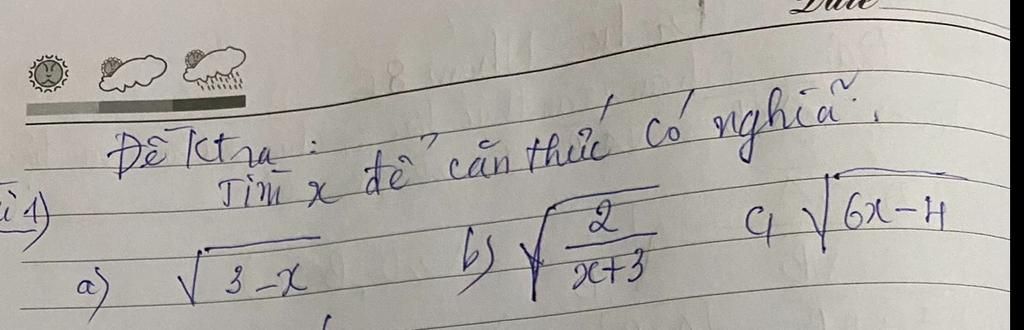 Date
Đề Ktra :
i 1) Tìm x để căn thức có nghĩa.
a) √(3-x) b) √(2/(x+3)) c) √(6x-4)